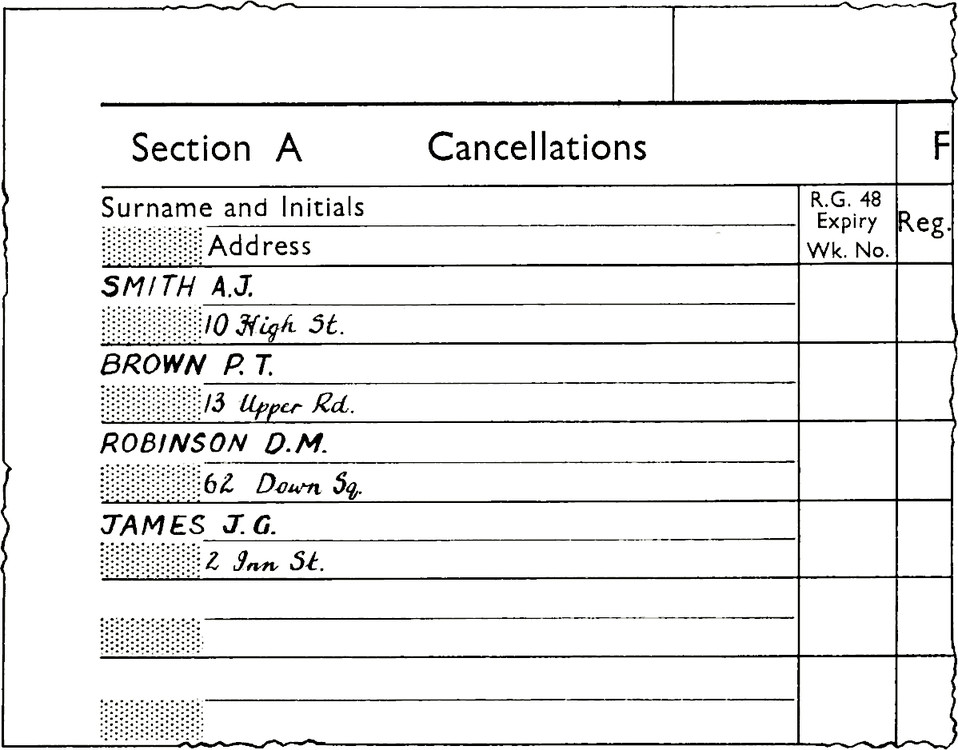 Section A Cancellations F
Surname and Initials
Address
R.G. 48
Expiry
Wk. No.
Reg.
SMITH A.J.
10 High St.
BROWN P.T.
13 Upper Rd.
ROBINSON D.M.
62 Down Sq.
JAMES J.G.
2 Inn St.